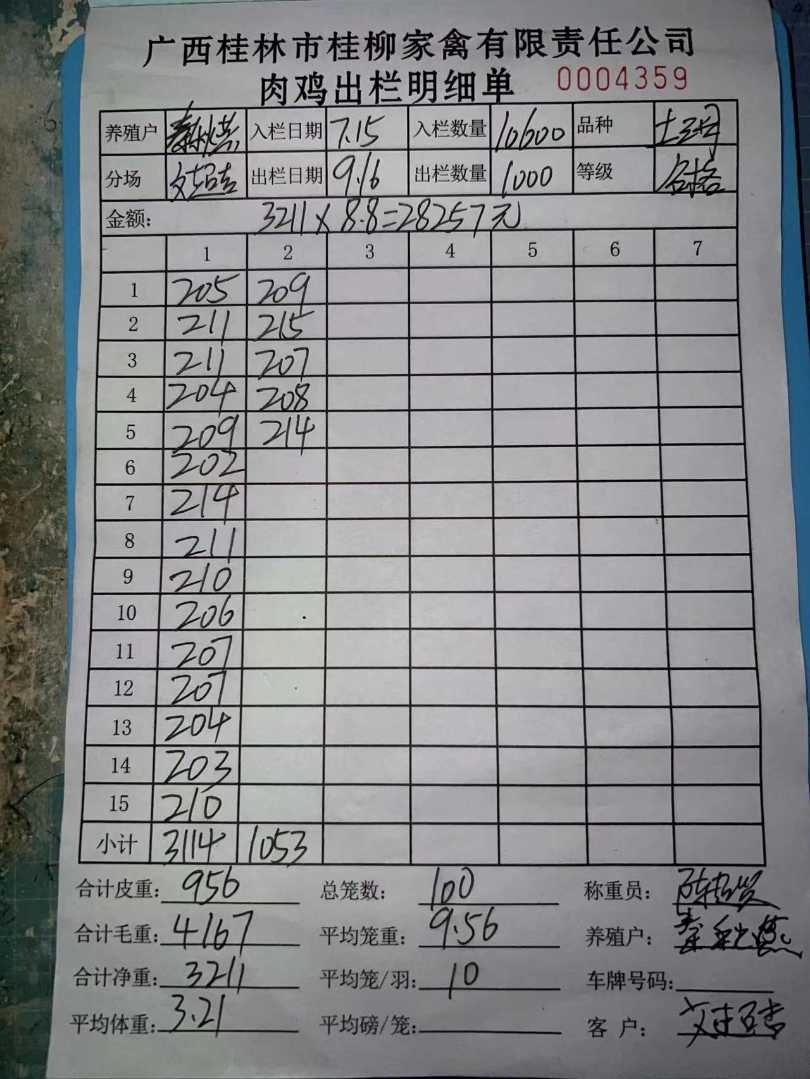 广西桂林市桂柳家禽有限责任公司
肉鸡出栏明细单 0004359
养殖户 入栏日期 7.15 入栏数量 10600 品种
分场 出栏日期 9.16 出栏数量 1000 等级 合格
金额: 3211×8.8=28257元
1 2 3 4 5 6 7
1 205 209
2 211 215
3 211 207
4 204 208
5 209 214
6 202
7 214
8 211
9 210
10 206
11 207
12 207
13 204
14 203
15 210
小计 3114 1053
合计皮重: 956 总笼数: 100 称重员:
合计毛重: 4167 平均笼重: 9.56 养殖户:
合计净重: 3211 平均笼/羽: 10 车牌号码:
平均体重: 3.21 平均磅/笼: 客 户: